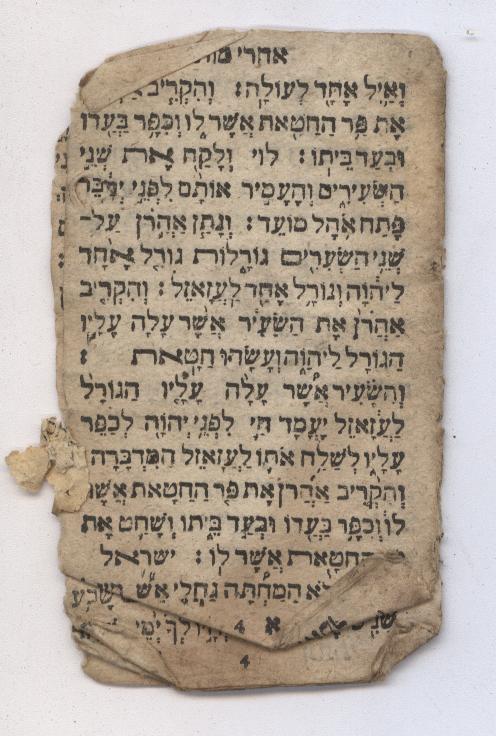 אחרי
וְאַיִל אֶחָד לְעוֹלָה׃ וְהִקְרִיב
אֶת פַּר הַחַטָּאת אֲשֶׁר לוֹ וְכִפֶּר בַּעֲדוֹ
וּבְעַד בֵּיתוֹ׃ לוי וְלָקַח אֶת שְׁנֵי
הַשְּׂעִירִים וְהֶעֱמִיד אוֹתָם לִפְנֵי יְדֹּבֵּר
פֶּתַח אֹהֶל מוֹעֵד׃ וְנָתַן אַהֲרֹן עַל־
שְׁנֵי הַשְּׂעִרִים גּוֹרָלוֹת גּוֹרָל אֶחָד
לַיהוָֹה וְגוֹרָל אֶחָד לַעֲזָאזֵל׃ וְהִקְרִיב
אַהֲרֹן אֶת הַשָּׂעִיר אֲשֶׁר עָלָה עָלָיו
הַגּוֹרָל לַיהוָֹה וְעָשָׂהוּ חַטָּאת׃
וְהַשָּׂעִיר אֲשֶׁר עָלָה עָלָיו הַגּוֹרָל
לַעֲזָאזֵל יָעֳמַד חַי לִפְנֵי יְהוָֹה לְכַפֵּר
עָלָיו לְשַׁלַּח אֹתוֹ לַעֲזָאזֵל הַמִּדְבָּרָה׃
וְהִקְרִיב אַהֲרֹן אֶת פַּר הַחַטָּאת אֲשֶׁר
לוֹ וְכִפֶּר בַּעֲדוֹ וּבְעַד בֵּיתוֹ וְשָׁחַט אֶת
הַחַטָּאת אֲשֶׁר לוֹ׃ ישראל
הַמַּחְתָּה גַּחֲלֵי אֵשׁ
א 4
4